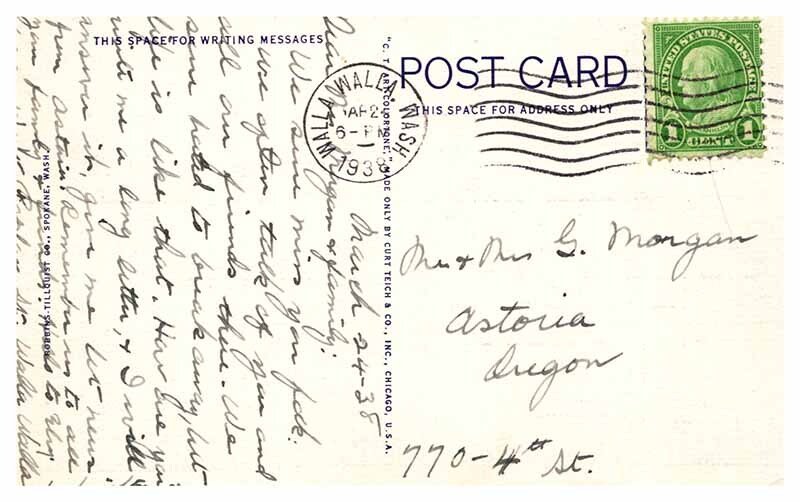 THIS SPACE FOR WRITING MESSAGES
POST CARD
THIS SPACE FOR ADDRESS ONLY
UNITED STATES POSTAGE
1 1
WALLA WALLA. WASH
6-PM
1938
March 24-38
Dear family:
We sure miss you folk.
we often talk of you and
all our friends there. We
sure hated to break away, but
life is like that. How are you
write me a long letter, & I will
answer it, give me lot news
from Astoria. Remember us to all
your family & friends.
Walla Walla
ROBBINS-TILLQUIST CO., SPOKANE, WASH.
"C. T. ART-COLORTONE," MADE ONLY BY CURT TEICH & CO., INC., CHICAGO, U.S.A.
Mr & Mrs G. Morgan
Astoria
Oregon
770-4th St.